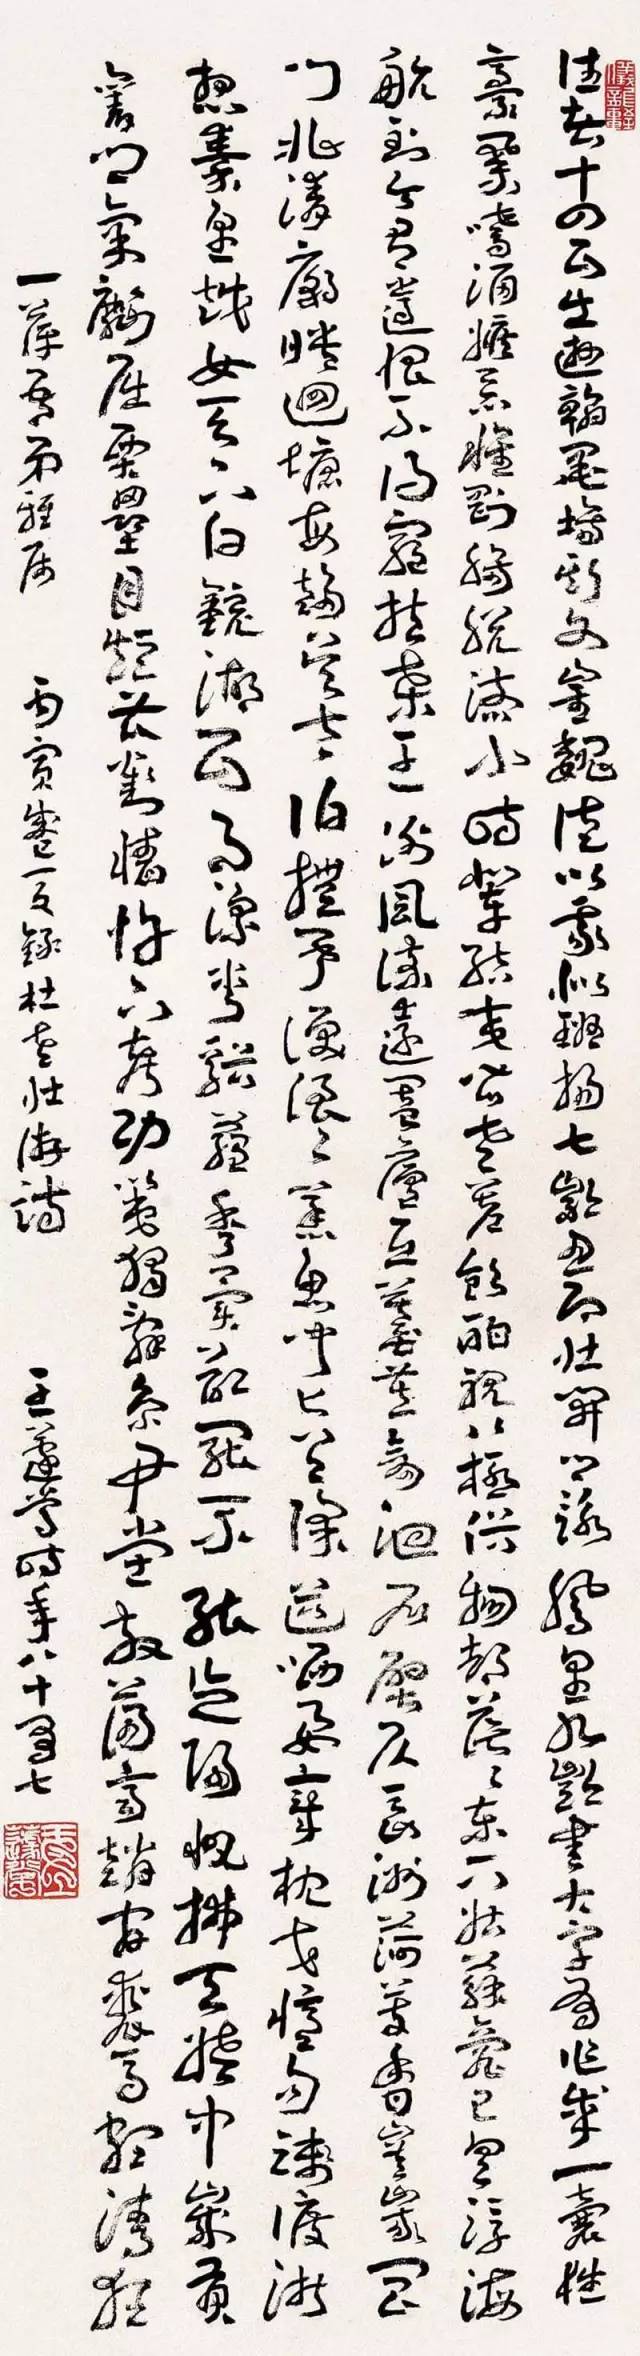 往者十四五出遊翰墨場斯文崔魏徒以我似班揚七齡思即壯開口詠鳳皇九齡書大字有作成一囊性
豪業嗜酒嫉惡懷剛腸脫略小時輩結交皆老蒼飲酣視八極俗物都茫茫東下姑蘇臺已具浮海
航到今有遺恨不得窮扶桑王謝風流遠闔廬丘墓荒劍池石壁仄長洲荷芰香嵯峨閶
門北清廟映迴塘每趨吳太伯撫事淚浪浪蒸魚聞匕首除道哂要章枕戈憶句踐渡浙
想秦皇越女天下白鑑湖五月涼剡谿蘊秀異欲罷不能忘歸帆拂天姥中歲貢
舊鄉氣劘屈賈壘目短曹劉牆忤下考功第獨辭京尹堂放蕩齊趙間裘馬頗清狂
一萍賢弟雅屬 丙寅夏錄杜老壯游詩 王蘧常時年八十有七